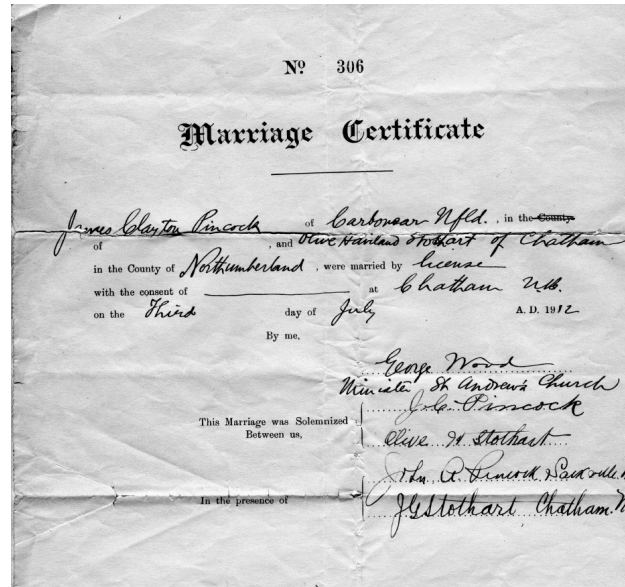 Nº 306
Marriage Certificate
James Clayton Pincock of Carbonear Nfld., in the County
of , and Olive Haviland Stothart of Chatham
in the County of Northumberland, were married by license
with the consent of at Chatham N.B.
on the Third day of July A. D. 1912
By me,
George Wood
Minister St Andrew's Church
J. C. Pincock
This Marriage was Solemnized
Between us,
Olive H Stothart
John A. Pincock Sackville
In the presence of
J G Stothart Chatham. N